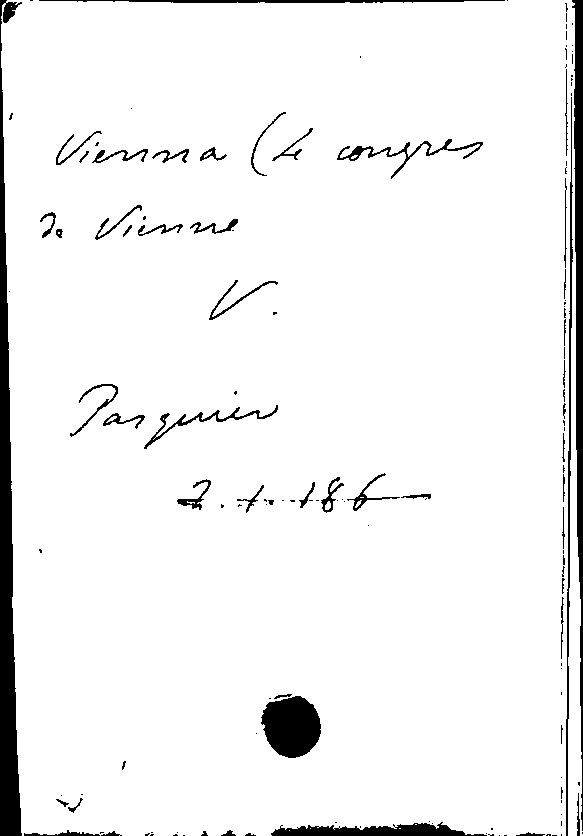 Vienna (Le congres
de Vienne
V.
Pasquier
2.1.186